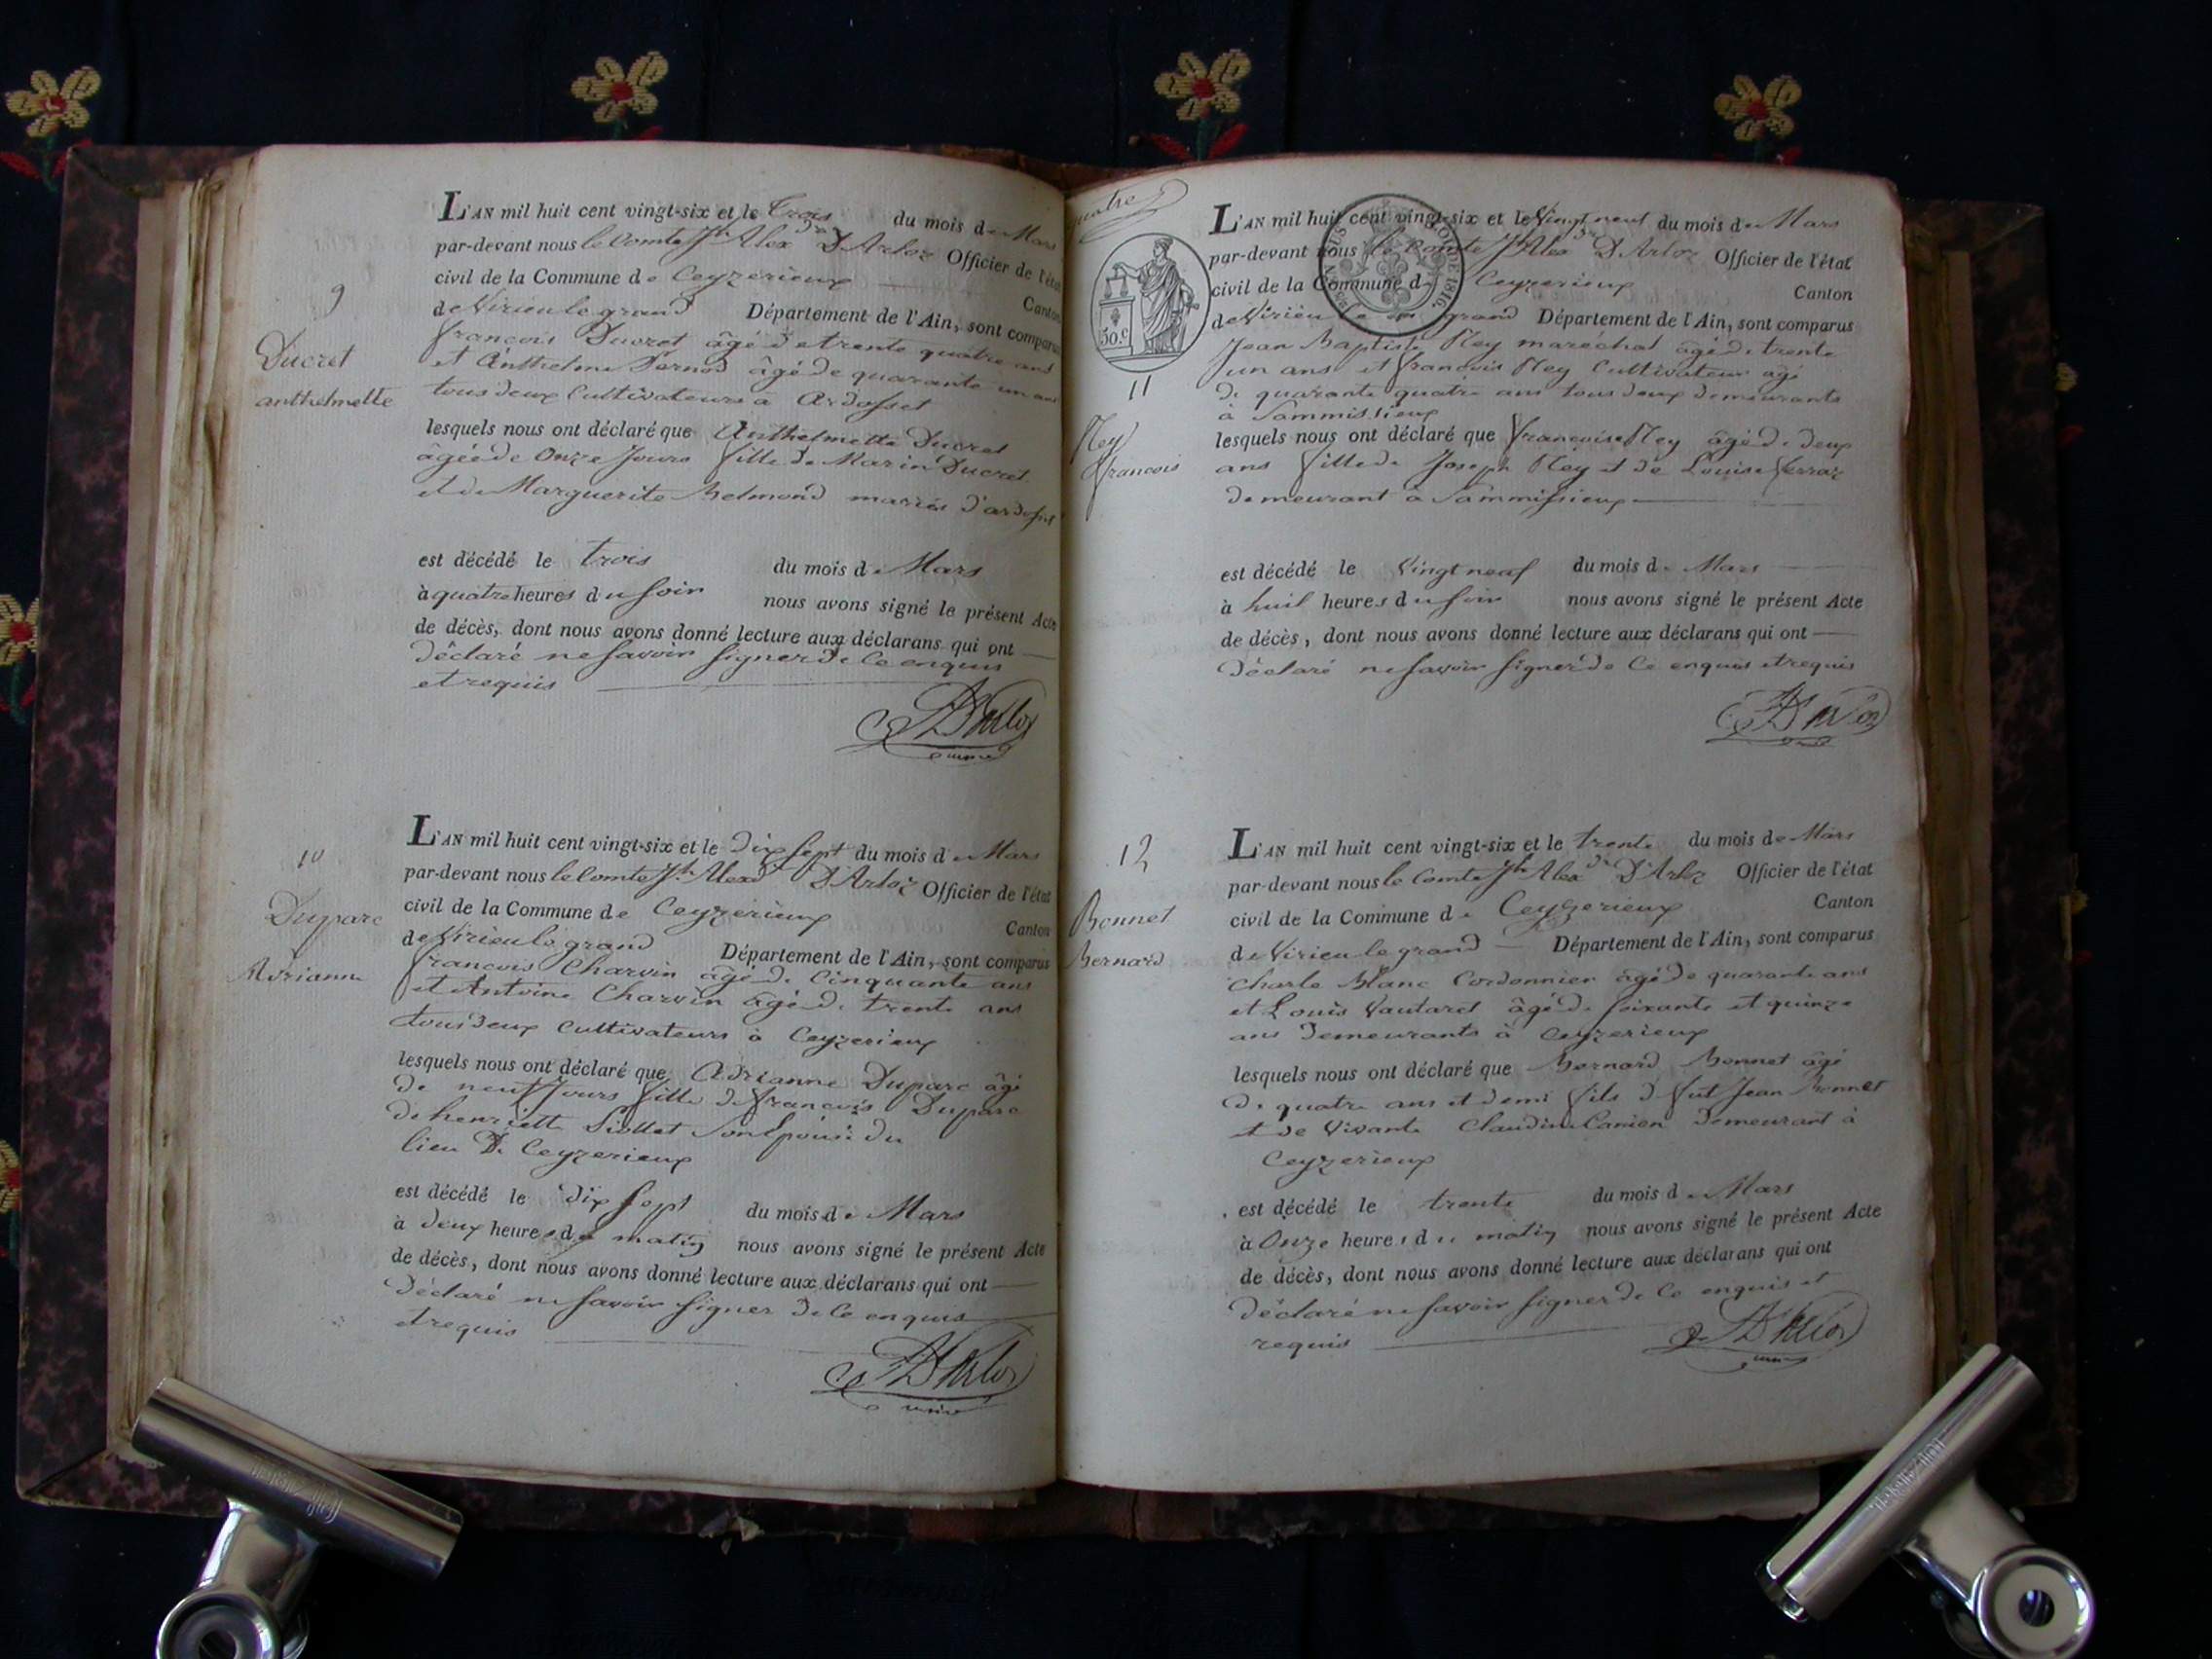 9
Ducret
anthelmette
L'AN mil huit cent vingt-six et le trois du mois de Mars
par-devant nous le Comte Jh Alexdre D'Arloz Officier de l'état
civil de la Commune de Ceyzerieux Canton
de Virieu le grand Département de l'Ain, sont comparus
françois Ducret âgé de trente quatre ans
et Anthelme Pernod âgé de quarante un ans
tous deux Cultivateurs à Ardosset
lesquels nous ont déclaré que Anthelmette Ducret
âgée de Onze Jours fille de Marin Ducret
et de Marguerite Belmond mariés d'ardosset
est décédé le trois du mois de Mars
à quatre heures du soir nous avons signé le présent Acte
de décès, dont nous avons donné lecture aux déclarans qui ont
déclaré ne savoir signer de ce enquis
et requis
D'Arloz
10
Duparc
Adrianne
L'AN mil huit cent vingt-six et le dix sept du mois de Mars
par-devant nous le Comte Jh Alexd D'Arloz Officier de l'état
civil de la Commune de Ceyzerieux Canton
de Virieu le grand Département de l'Ain, sont comparus
françois Charvin âgé de Cinquante ans
et Antoine Charvin âgé de trente ans
tous deux Cultivateurs à Ceyzerieux
lesquels nous ont déclaré que Adrianne Duparc âgé
de neuf Jours fille de françois Duparc
de henriette Siollet son Épouse du
lieu De Ceyzerieux
est décédé le dix sept du mois de Mars
à deux heures du matin nous avons signé le présent Acte
de décès, dont nous avons donné lecture aux déclarans qui ont
Déclaré ne savoir signer de Ce enquis
et requis
D'Arloz
quatre
50.c
11
Rey
francois
L'AN mil huit cent vingt-six et le Vingt neuf du mois de Mars
par-devant nous le Comte Jh Alexdre D'Arloz Officier de l'état
civil de la Commune de Ceyzerieux Canton
de Virieu le grand Département de l'Ain, sont comparus
Jean Baptiste Rey marechal âgé de trente
un ans et françois Rey Cultivateur agé
de quarante quatre ans tous deux demeurants
à Sammissieux
lesquels nous ont déclaré que françoise Rey âgé de deux
ans fille de Joseph Rey et de Louise ferraz
demeurant à Sammissieux
est décédé le Vingt neuf du mois de Mars
à huit heures du soir nous avons signé le présent Acte
de décès, dont nous avons donné lecture aux déclarans qui ont
Déclaré ne savoir signer de Ce enquis et requis
D'Arloz
12
Bonnet
Bernard
L'AN mil huit cent vingt-six et le trente du mois de Mars
par-devant nous le Comte Jh Alexdre D'Arloz Officier de l'état
civil de la Commune de Ceyzerieux Canton
de Virieu le grand Département de l'Ain, sont comparus
Charle Blanc Cordonnier âgé de quarante ans
et Louis Vautaret âgé de soixante et quinze
ans Demeurants à Ceyzerieux
lesquels nous ont déclaré que Bernard Bonnet âgé
de quatre ans et demi fils de fut Jean Bonnet
et de Vivante Claudine Canien Demeurant à
Ceyzerieux
est décédé le trente du mois de Mars
à Onze heures du matin nous avons signé le présent Acte
de décès, dont nous avons donné lecture aux déclarans qui ont
déclaré ne savoir signer de Ce enquis et
requis
D'Arloz